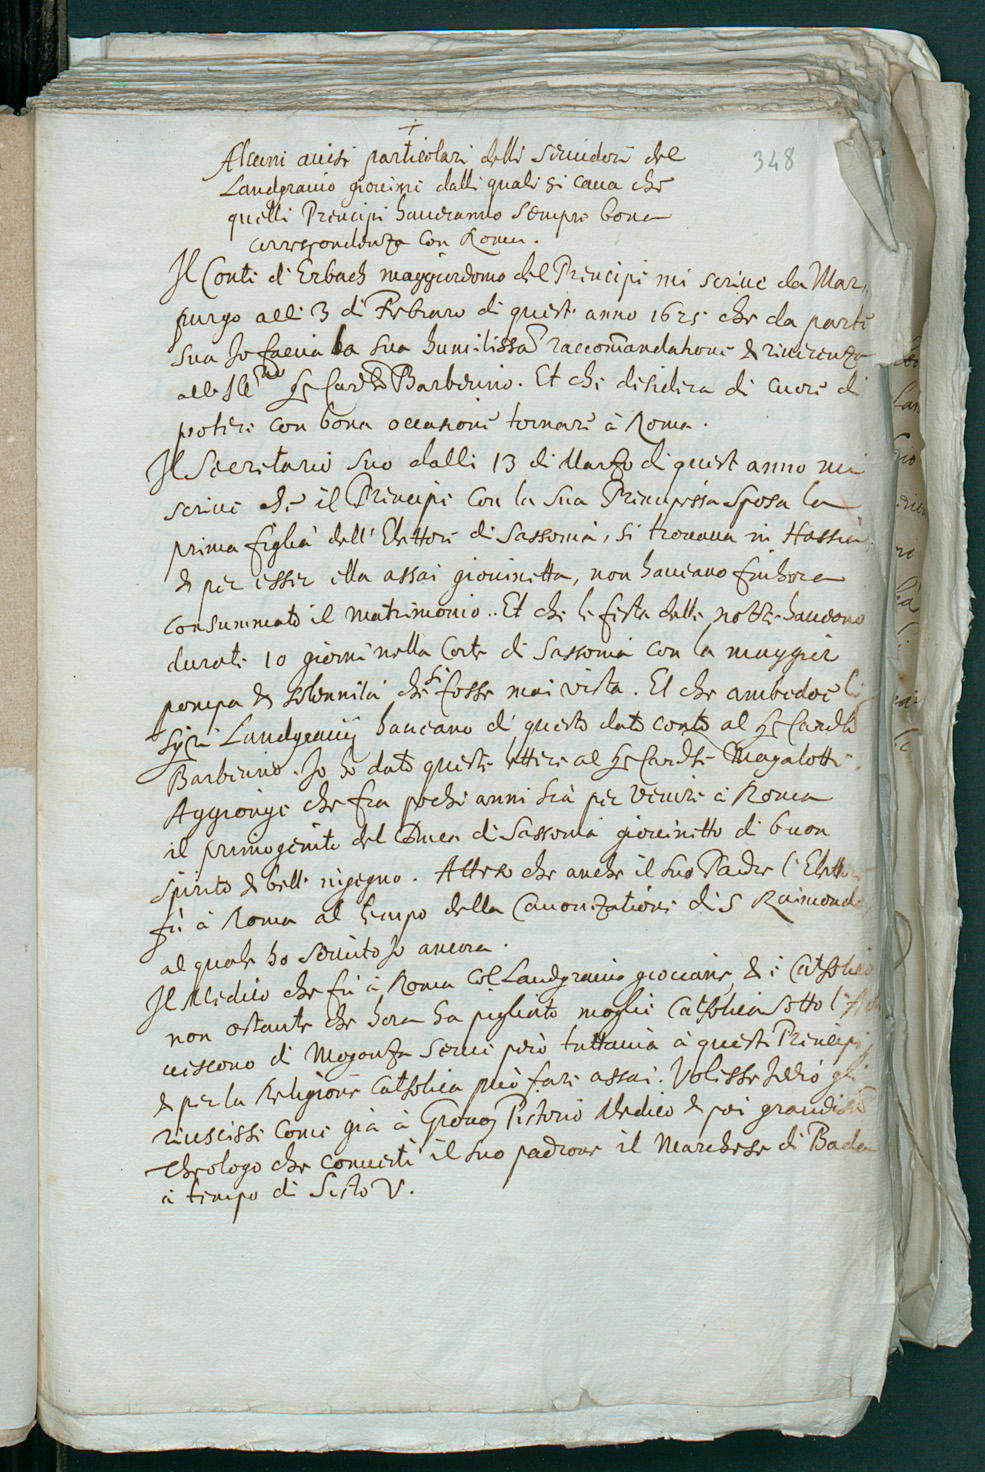 +
348
Alcuni auisi particolari delli Seruidori del
Landgrauio giouine dalli quali si caua che
quelli Principi haueranno sempre bona
correspondenza con Roma.
Il Conte d'Erbach maggiordomo del Principe mi scriue da Mar-
purgo alli 3 di Febraro di quest' anno 1625 che da parte
sua Io facia la sua humilissa raccomandatione & riuerenza
all' Ill mo Sr Cardle Barberino. Et che desidera di cuore di
potere con bona occasione tornare à Roma.
Il Secretario suo dalli 13 di Marzo di quest anno mi
scriue che il Principe con la sua Principessa Sposa la
prima figlia dell' Elettore di Sassonia, si trouaua in Hassia,
& per esser ella assai giouinetta, non haueano finhora
consummato il matrimonio. Et che le feste delle nozze haueano
durate 10 giorni nella Corte di Sassonia con la maggior
pompa & solennità che si fosse mai vista. Et che ambedoe li
Sgri Landgrauij haueano di questo dato conto al Sr Cardle
Barberino. Io ho dato queste lettere al Sr Cardle Magalotti.
Aggionge che fra pochi anni sia per venire à Roma
il primogenito del Duca di Sassonia giouinetto di buon
spirito & bell' ingegno. Atteso che anche il suo Padre l'Elettore
fù à Roma al tempo della Canonizatione di S Raimondo,
al quale ho seruito Io ancora.
Il Medico che fu à Roma col Landgrauio giouane, & è Catholico
non ostante che hora ha pigliato moglie Catholica sotto l'Arci
uescouo di Mogonza serue però tuttauia à questi Principi,
& per la Religione Catholica può fare assai. Volesse Iddio gli
riuscissi come già à Pistorio Medico & poi grandissmo
Theologo che conuertì il suo padrone il Marchese di Bada
à tempo di Sisto V.